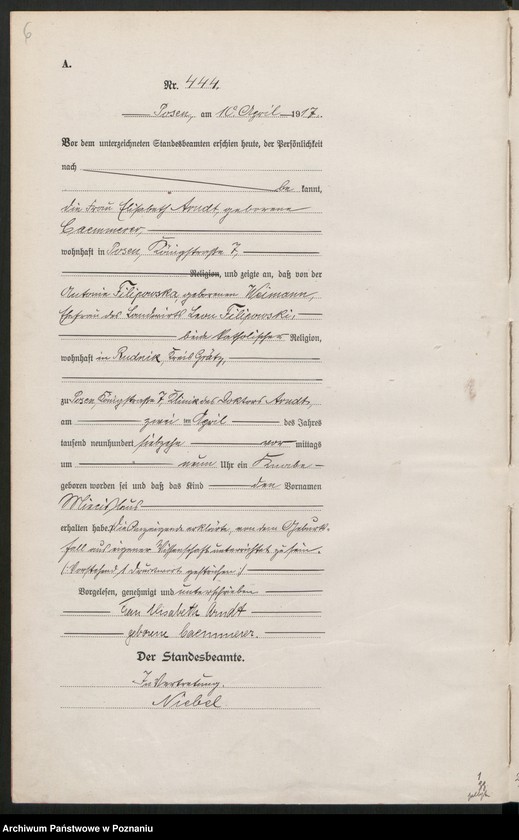 6
A.
Nr. 444.
Posen, am 10. April 1917.
Vor dem unterzeichneten Standesbeamten erschien heute, der Persönlichkeit
nach
be kannt,
die Frau Elisabeth Arndt, geborene
Caemmerer,
wohnhaft in Posen, Königstraße 7,
Religion, und zeigte an, daß von der
Antonie Filipowska, geborenen Weimann,
Ehefrau des Landwirts Leon Filipowski,
beide katholischer Religion,
wohnhaft in Rudnik, Kreis Grätz,
zu Posen, Königstraße 7, Klinik des Doktors Arndt,
am zwei ten April des Jahres
tausend neunhundert siebzehn vor mittags
um neun Uhr ein Knabe
geboren worden sei und daß das Kind den Vornamen
Miecislaus
erhalten habe. Die Anzeigende erklärte, von dem Geburts-
fall aus eigener Wissenschaft unterrichtet zu sein.
(Vorstehend 1 Druckwort gestrichen.)
Vorgelesen, genehmigt und unterschrieben
Frau Elisabeth Arndt
geborene Caemmerer.
Der Standesbeamte.
In Vertretung.
Niebel
Archiwum Państwowe w Poznaniu